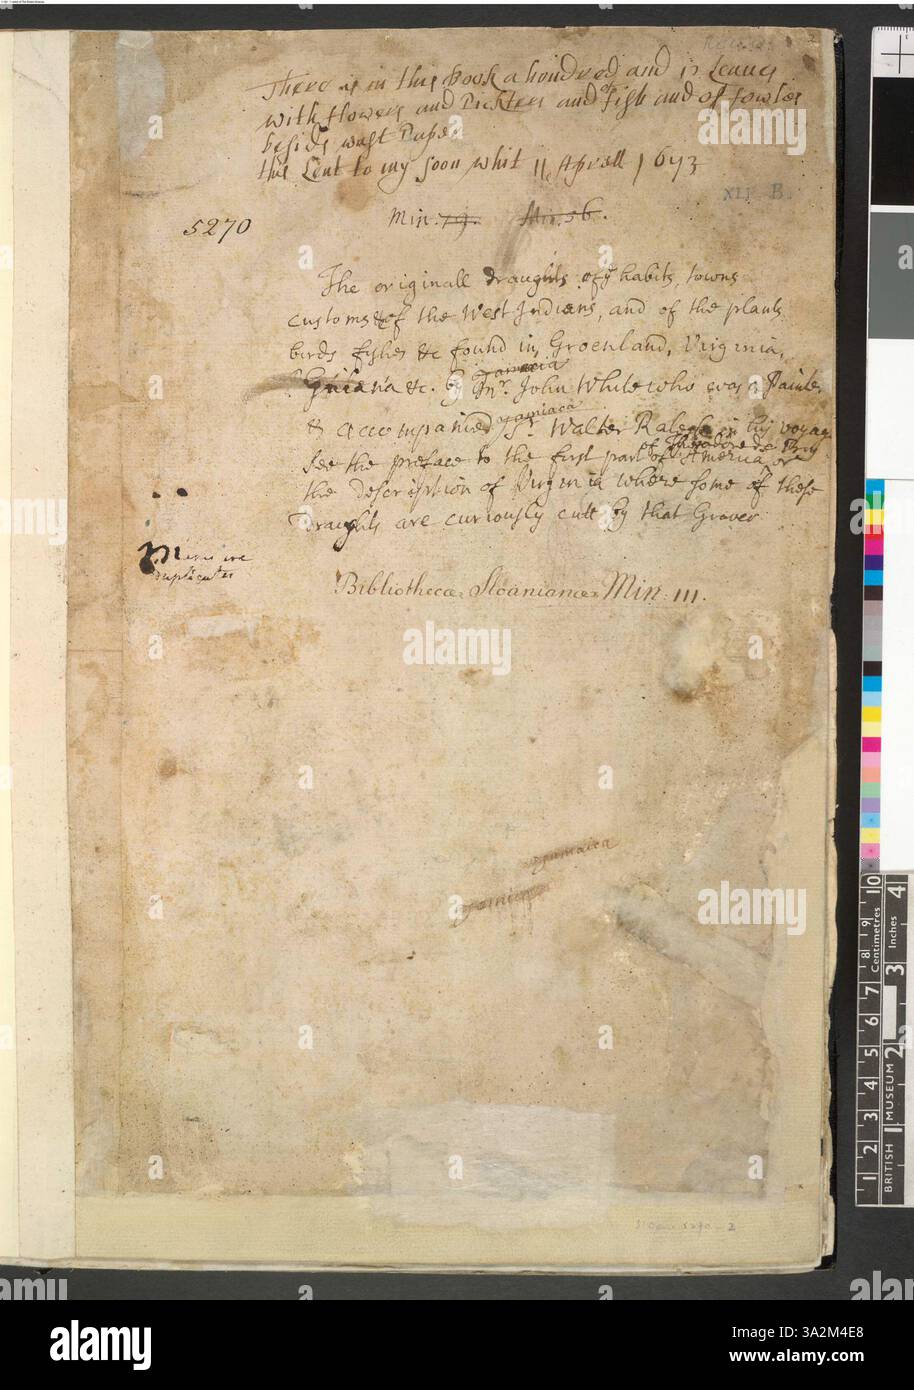 There is in this Book a hundred and 12 Leaues
with flowers and Pickters and of fish and of fowles
besides wast Paper
this Lent to my Soon whit 11 Aprell 1673
XLI B.
5270
Min: 79. Min. 56.
The originall draughts of ye habits, towns
customs &c of the West Indians, and of the plants
birds fishes &c found in Groenland, Virginia,
Jamacia
Guiana &c. by Mr. John White who was a Painter
yamiaca
& accompanied Sr. Walter Ralegh in his voyage
of Theodore de Bry
See the preface to the first part of America or
the description of Virginia where some of these
Draughts are curiously cutt by that Graver
duplicates
Bibliothecæ Sloanianæ Min: 111.
yamaica
Sloane 5270-2
10 9 8 7 6 5 4 3 2 1
Centimetres
4 3 2 1
Inches
BRITISH MUSEUM
alamy
a
alamy
www.alamy.com
Image ID: 3A2M4E8